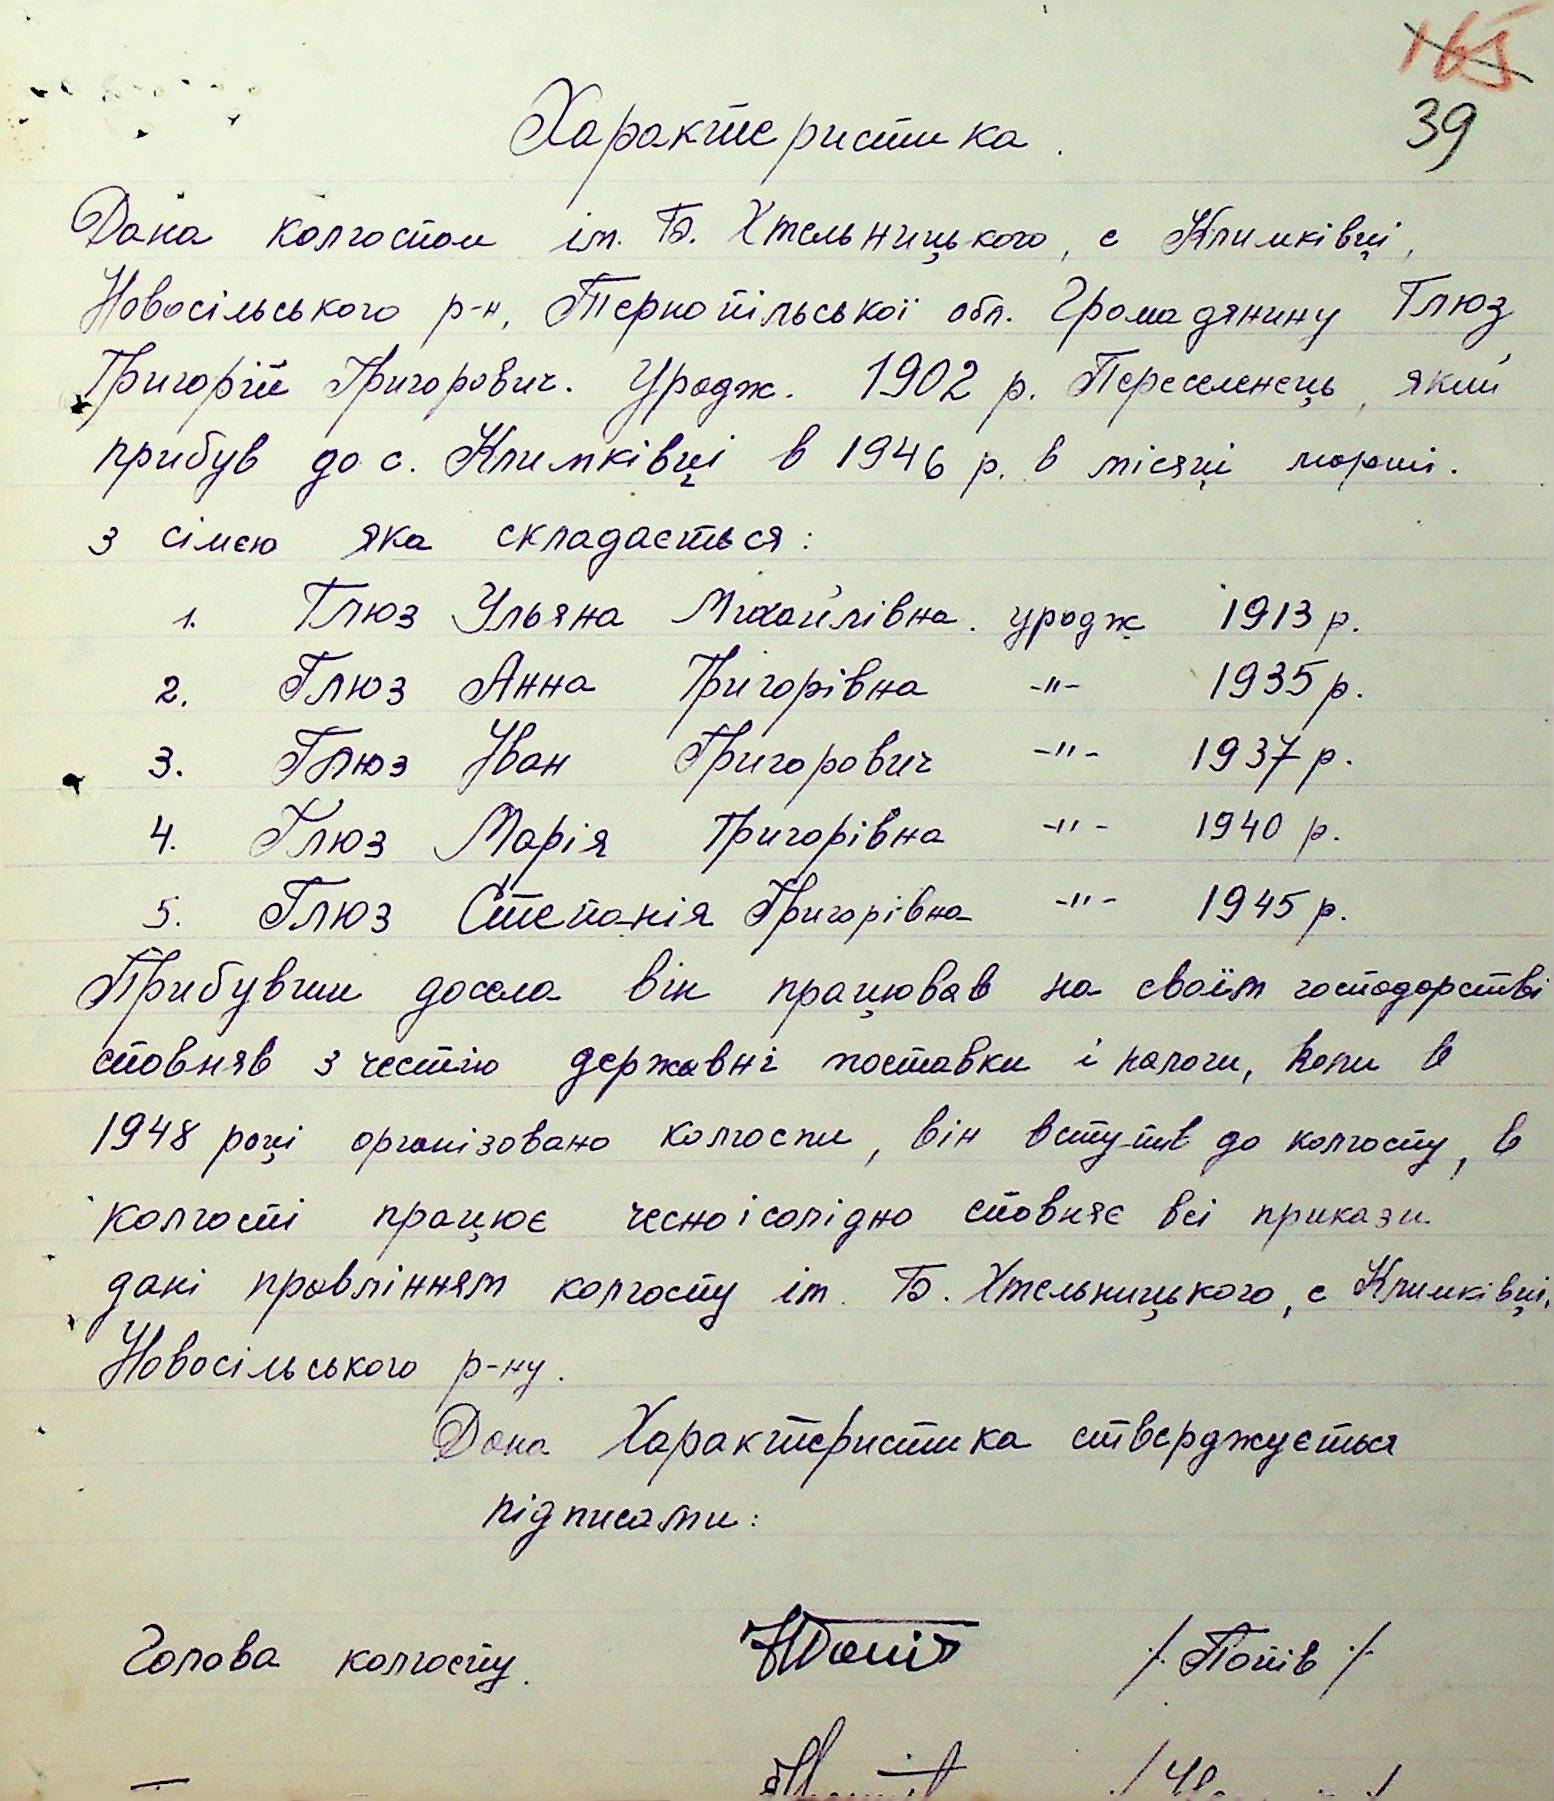 165
39
Характеристика.
Дана колгоспом ім. Б. Хмельницького, с Климківці,
Новосільського р-н, Тернопільської обл. Громадянину Глюз
Григорій Григорович. Уродж. 1902 р. Переселенець, який
прибув до с. Климківці в 1946 р. в місяці марті.
з сімєю яка складається:
1. Глюз Ульяна Михайлівна. уродж 1913 р.
2. Глюз Анна Григорівна -"- 1935 р.
3. Глюз Іван Григорович -"- 1937 р.
4. Глюз Марія Григорівна -"- 1940 р.
5. Глюз Степанія Григорівна -"- 1945 р.
Прибувши досела він працював на своїм господарстві
сповняв з честію державні поставки і налоги, коли в
1948 році організовано колгоспи, він вступив до колгоспу, в
колгоспі працює чесно і солідно сповняє всі прикази
дані правлінням колгоспу ім. Б. Хмельницького, с Климківці,
Новосільського р-ну.
Дана Характеристика стверджується
підписами:
Голова колгоспу. /Попів/